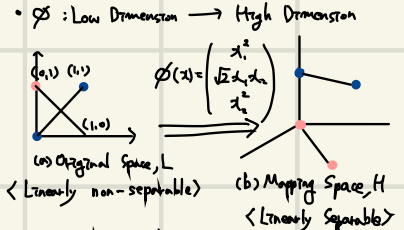 • Ø : Low Dimension → High Dimension
(0,1) (1,1)
(1,0)
Ø(x) = ( x₁² √2x₁x₂ x₂² )
(a) Original Space, L
< Linearly non-separable >
(b) Mapping Space, H
< Linearly Separable >